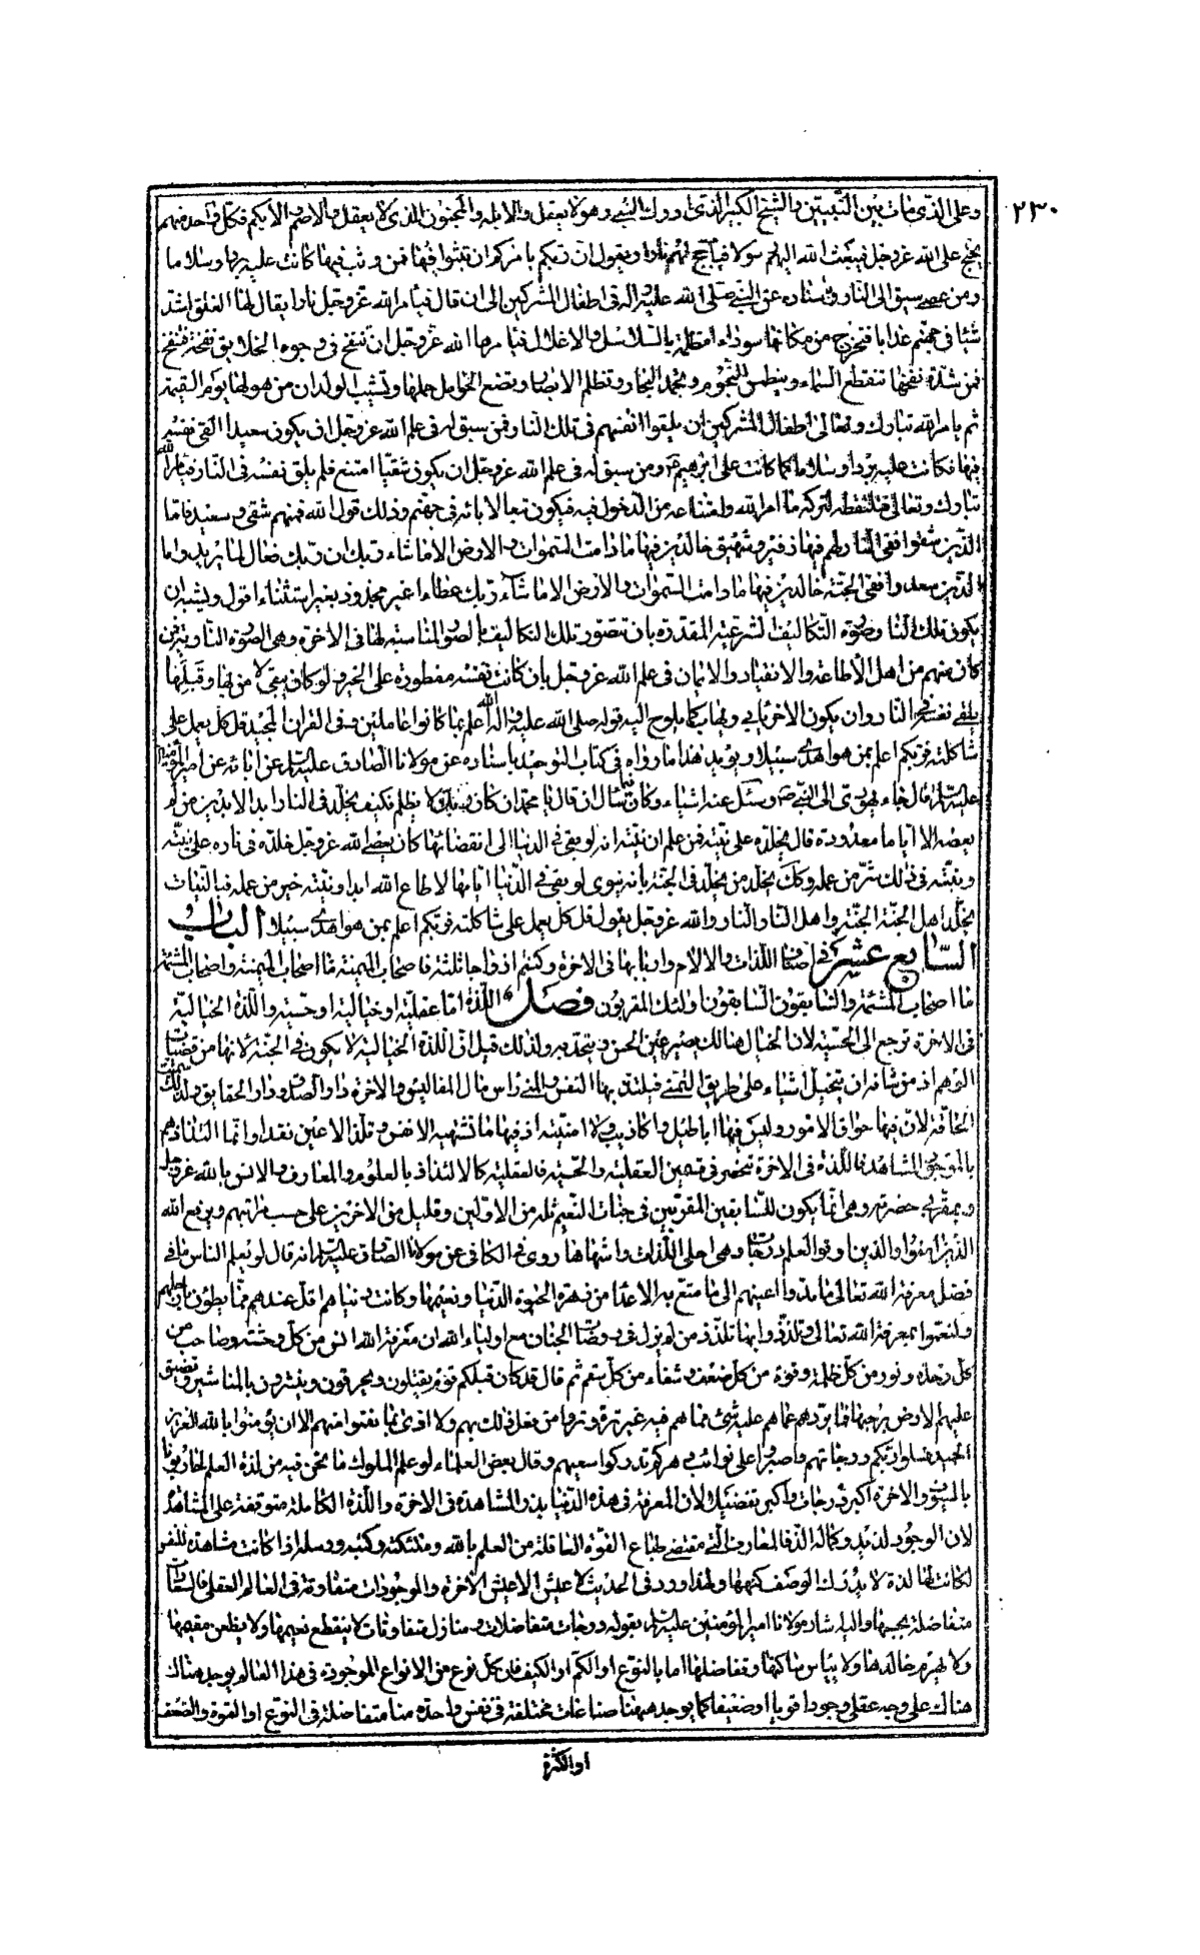 ٢٣٠
وعلى الذى مات بين النبيين والشيخ الكبير الذى ادرك النبى وهو لا يعقل والابله والمجنون الذى لا يعقل والاصم والابكم فكل واحد منهم
يحتج على الله عز وجل فيبعث الله اليهم رسولا فيأجج لهم نارا ويقول ان ربكم يامركم ان تثبوا فيها فمن وثب فيها كانت عليه بردا وسلاما
ومن عصى سيق الى النار وباسناده عن النبى صلى الله عليه واله فى اطفال المشركين الى ان قال فيأمر الله عز وجل نارا يقال لها الفلق اشد
شئ فى جهنم عذابا فتخرج من مكانها سوداء مظلمة بالسلاسل والاغلال فيأمرها الله عز وجل ان تنفخ فى وجوه الخلايق نفخة فتنفخ
فمن شدة نفختها تنقطع السماء وينطمس النجوم ويجمد البحار وتظلم الابصار وتضع الحوامل حملها وتشيب الولدان من هولها يوم القيمة
ثم يامر الله تبارك وتعالى اطفال المشركين ان يلقوا انفسهم فى تلك النار فمن سبق له فى علم الله عز وجل ان يكون سعيدا القى نفسه
فيها فكانت عليه بردا وسلاما كما كانت على ابرهيم ع ومن سبق له فى علم الله عز وجل ان يكون شقيا امتنع فلم يلق نفسه فى النار فيامر الله
تبارك وتعالى فتلتقطه لتركه ما امر الله وامتناعه من الدخول فيه فيكون تبعا لابائه فى جهنم وذلك قول الله فمنهم شقى وسعيد فاما
الذين شقوا ففى النار لهم فيها زفير وشهيق خالدين فيها ما دامت السموات والارض الا ما شاء ربك ان ربك فعال لما يريد واما
الذين سعدوا ففى الجنة خالدين فيها ما دامت السموات والارض الا ما شاء ربك عطاء غير مجذوذ بغير استثناء اقول ويشبه ان
يكون تلك النار صورة التكاليف الشرعية المقدرة بان تتصور تلك التكاليف بالصور المناسبة لها فى الاخرة وهى الصورة النارية فمن
كان منهم من اهل الاطاعة والانقياد والايمان فى علم الله عز وجل بان كانت نفسه مفطورة على الخير ولو كان بقى لامن بها وقبلها
يلقى نفسه فى النار وان يكون الاخر يابى ويهاب كما يلوح اليه قوله صلى الله عليه واله الله اعلم بما كانوا عاملين وفى القران المجيد قل كل يعمل على
شاكلته فربكم اعلم بمن هو اهدى سبيلا ويؤيد هذا ما رواه فى كتاب التوحيد باسناده عن مولانا الصادق عليه السلم عن ابائه عن امير المؤمنين
عليه السلم قال جاء يهودى الى النبى ص وسئل عنه اشياء وكان فيما سال ان قال يا محمد ان كان ربك لا يظلم فكيف يخلد فى النار ابد الابدين من لم
يعصه الا اياما معدودة قال يخلده على نيته فمن علم ان نيته انه لو بقى فى الدنيا الى انقضائها كان يعصى الله عز وجل خلده فى ناره على نيته
ونيته فى ذلك شر من عمله وكك يخلد من يخلد فى الجنة بانه ينوى لو بقى فى الدنيا ايامها لاطاع الله ابدا ونيته خير من عمله فبالنيات
يخلد اهل الجنة الجنة واهل النار النار والله عز وجل يقول قل كل يعمل على شاكلته فربكم اعلم بمن هو اهدى سبيلا الباب
السابع عشر فى اصناف اللذات والالام واربابها فى الاخرة وكنتم ازواجا ثلثة فاصحاب الميمنة ما اصحاب الميمنة واصحاب المشئمة
ما اصحاب المشئمة والسابقون السابقون اولئك المقربون فصل اللذة اما عقلية او خيالية او حسية واللذة الخيالية
فى الاخرة ترجع الى الحسية لان الخيال هنالك يصير عين الحس ويتحد به ولذلك قيل ان اللذة الخيالية لا يكون فى الجنة لانها من قضيات
الوهم اذ من شانه ان يتخيل اشياء على طريق التمنى فيلتذ بها النفس والمنى راس مال المفاليس والاخرة دار الصدق ودار الحقايق ولذلك سميت
الحاقة لان فيها حواق الامور وليس فيها اباطيل واكاذيب ولا امنية اذ فيها ما تشتهيه الانفس وتلذ الاعين نقدا وانما التذاذهم
بالموجود المشاهد فاللذة فى الاخرة تنحصر فى قسمين العقلية والحسية فالعقلية كالالتذاذ بالعلوم والمعارف والانس بالله عز وجل
وبمقربى حضرته وهى انما يكون للسابقين المقربين فى جنات النعيم ثلة من الاولين وقليل من الاخرين على حسب مراتبهم ويرفع الله
الذين امنوا والذين اوتوا العلم درجات وهى اجلى اللذات واشهاها روى فى الكافى عن مولانا الصادق عليه السلم انه قال لو يعلم الناس ما فى
فضل معرفة الله تعالى ما مدوا اعينهم الى ما متع به الاعداء من زهرة الحيوة الدنيا ونعيمها وكانت دنياهم اقل عندهم مما يطؤن بارجلهم
ولنعموا بمعرفة الله تعالى وتلذذوا بها تلذذ من لم يزل فى روضات الجنان مع اولياء الله ان معرفة الله انس من كل وحشة وصاحب من
كل وحدة ونور من كل ظلمة وقوة من كل ضعف وشفاء من كل سقم ثم قال قد كان قبلكم قوم يقتلون ويحرقون وينشرون بالمناشير وتضيق
عليهم الارض برحبها فما يردهم عما هم عليه شئ مما هم فيه من غير ترة وتروا من فعل ذلك بهم ولا اذى بما نقموا منهم الا ان يؤمنوا بالله العزيز
الحميد فسلوا ربكم درجاتهم واصبروا على نوائب دهركم تدركوا سعيهم وقال بعض العلماء لو علم الملوك ما نحن فيه من لذة العلم لحاربونا
بالسيوف والاخرة اكبر درجات واكبر تفضيلا لان المعرفة فى هذه الدنيا بذر المشاهدة فى الاخرة واللذة الكاملة متوقفة على المشاهدة
لان الوجود لذيذ وكماله الذ فالمعارف التى مقتضى طباع القوة العاقلة من العلم بالله وملئكته وكتبه ورسله اذا كانت مشاهدة للنفس
لكانت لها لذة لا يدرك الوصف كنهها ولهذا ورد فى الحديث لا عيش الا عيش الاخرة والموجودات متفاوتة فى العالم العقلى فالسعادات
متفاضلة بحسبها واليه اشار مولانا امير المؤمنين عليه السلم بقوله درجات متفاضلات ومنازل متفاوتات لا ينقطع نعيمها ولا يظعن مقيمها
ولا يهرم خالدها ولا يبأس ساكنها وتفاضلها اما بالنوع او الكم او الكيف فان كل نوع من الانواع الموجودة فى هذا العالم يوجد هناك
هناك على وجه عقلى وجودا قويا او ضعيفا كما يوجد ههنا صناعات مختلفة فى نفس واحدة منا متفاضلة فى النوع او القوة والضعف
او الكثرة